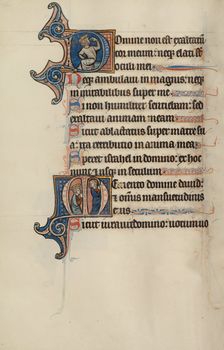 Domine non est exaltatum
cor meum: neqz elati st
oculi mei
Neqz ambulaui in magnis: neqz
in mirabilibus super me
Si non humiliter sentiebam: sed
exaltaui animam meam
Sicut ablactatus super matre su
a: ita retributio in anima mea
Speret israhel in domino: ex hoc
nunc et usqz in seculum
Memento domine dauid:
et omnis mansuetudinis
eius
Sicut iurauit domino: uotum uo